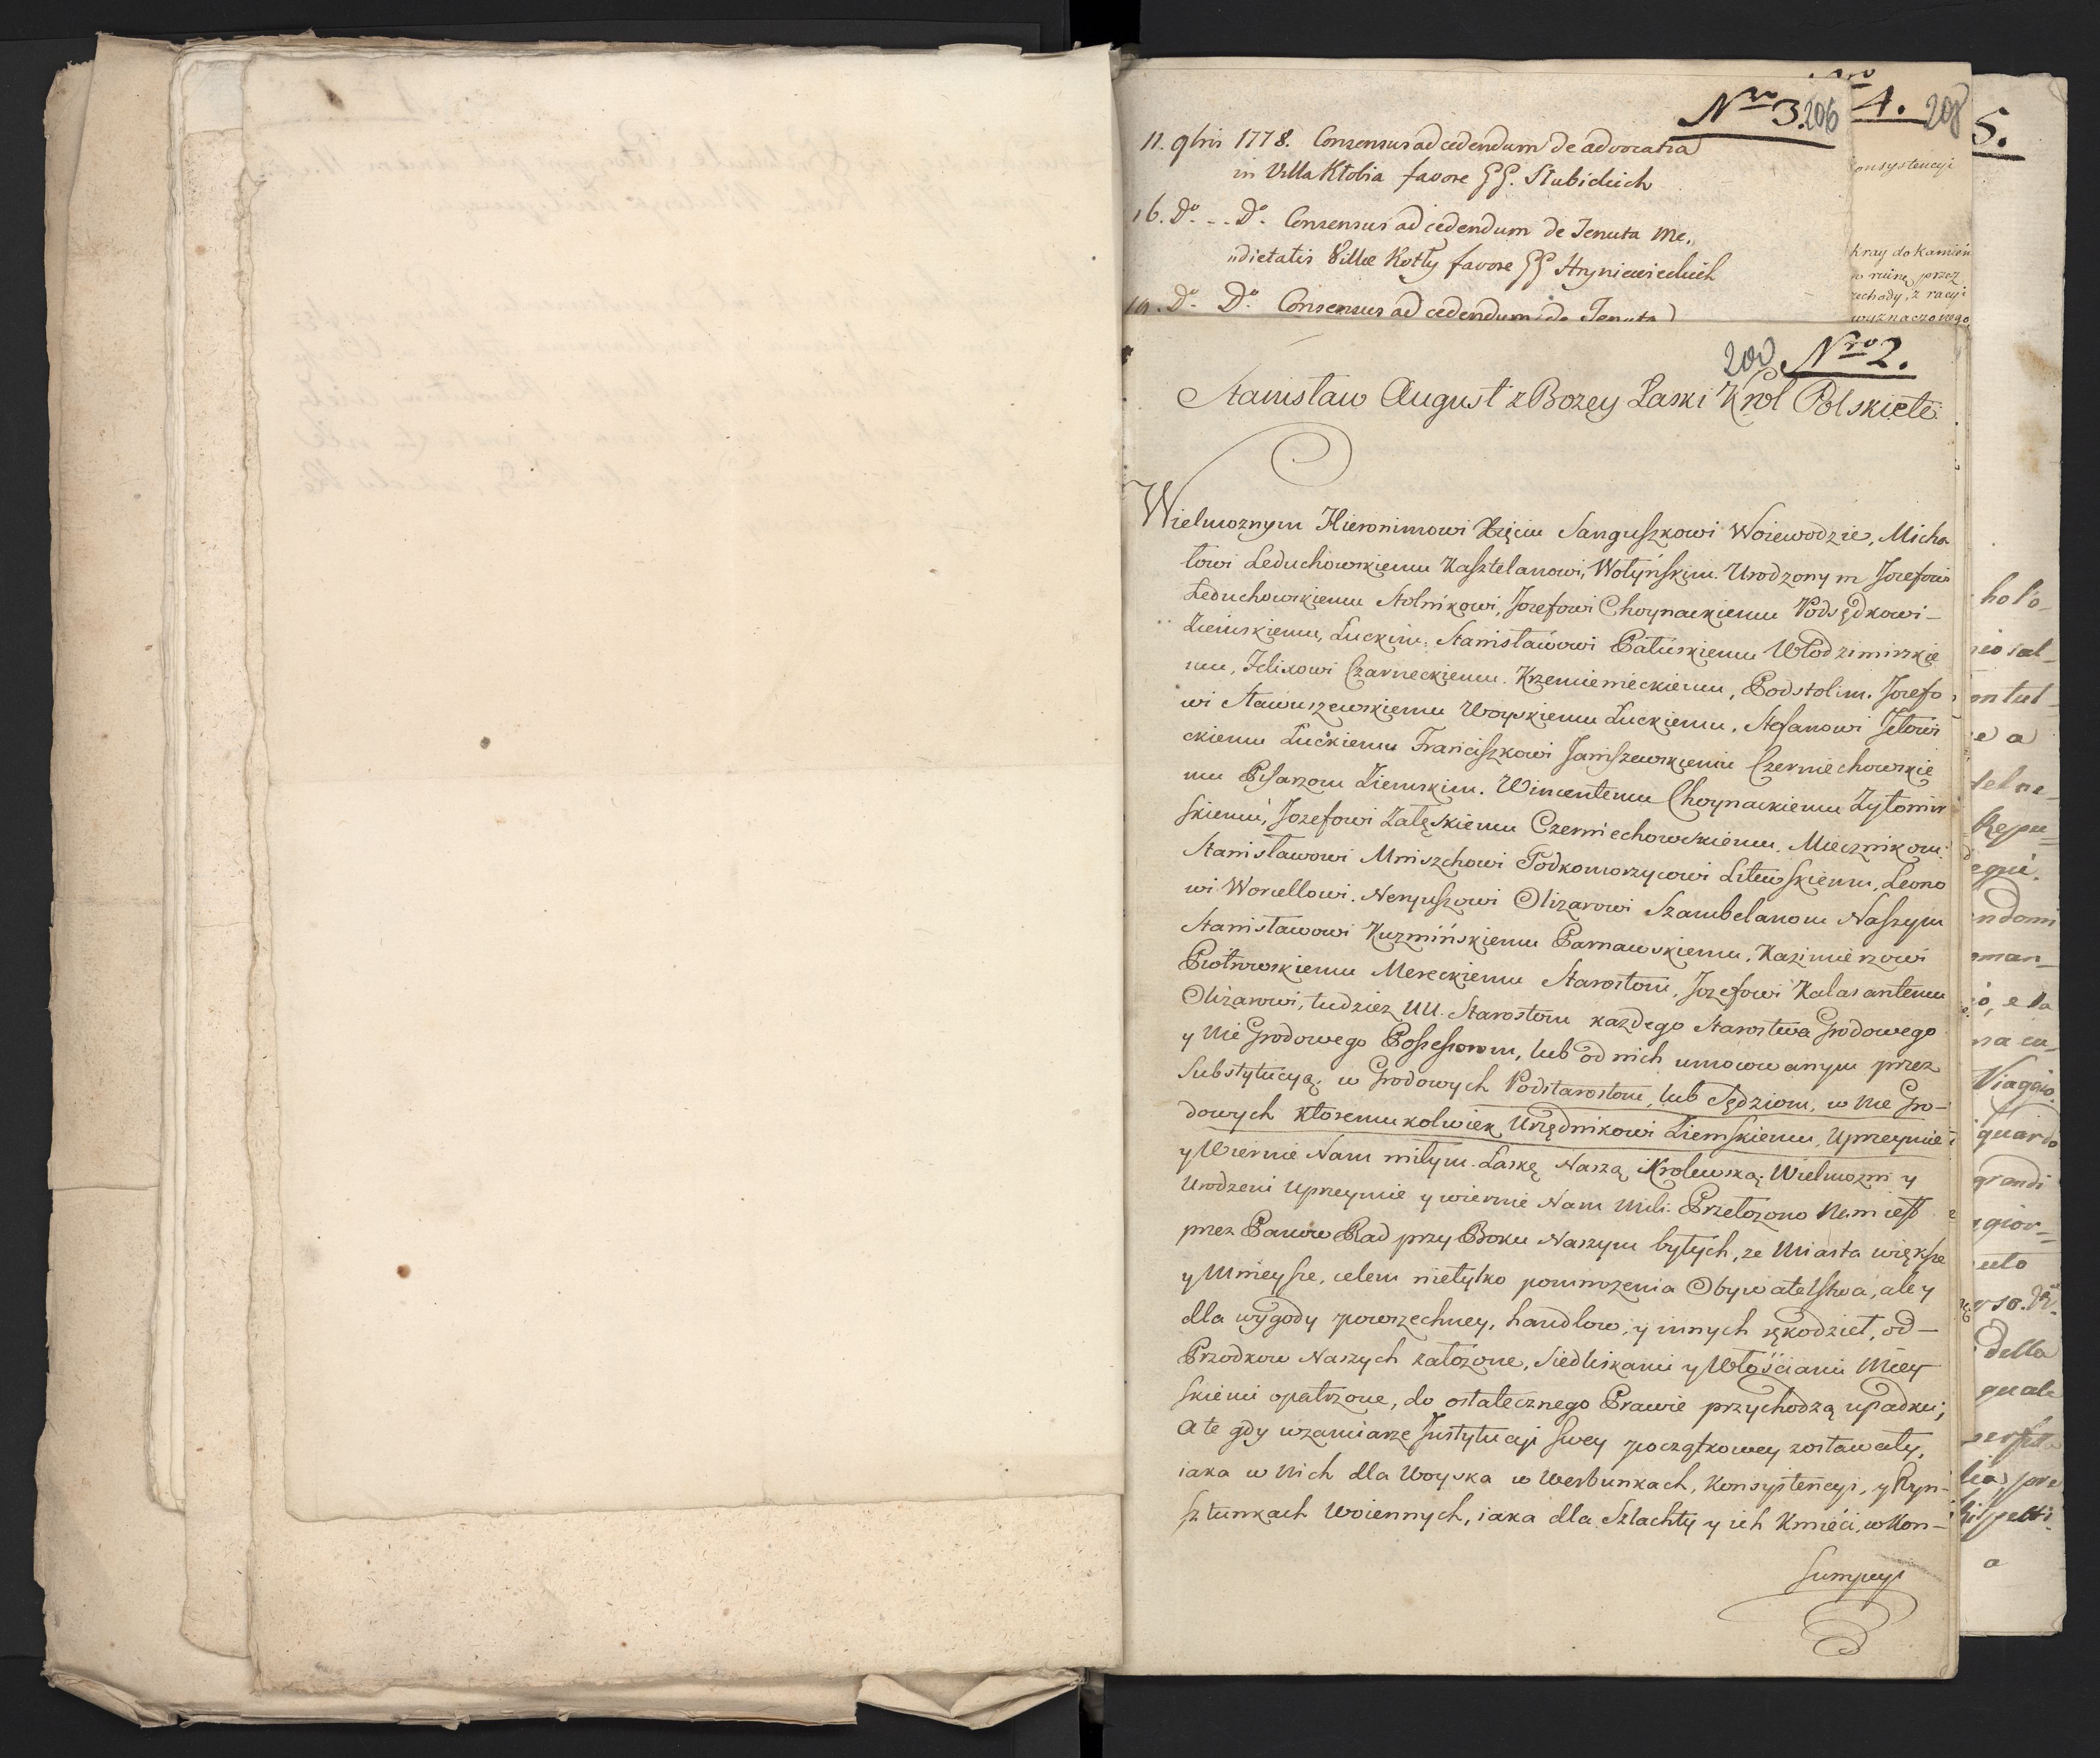 Nro 3. 206
11. 9bris 1778. Consensus ad cedendum de advocatia
in Villa Kłobia favore GG. Słubickich
16. Do. -- Do. Consensus ad cedendum de Tenuta Me„
„dietatis Villæ Kotły favore GG Hryniewieckich
19. Do. Do. Consensus ad cedendum de Tenuta
4. 208
onsystencyi
kray do Kamień
ruinę przez
zechody, z racyi
wyznaczonego
5.
200 Nro 2.
Stanisław August z Bozey Łaski Krol Polski etc:
Wielmoznym Hieronimowi Xięciu Sanguszkowi Woiewodzie, Micha
łowi Leduchowskiemu Kasztelanowi, Wołyńskim. Urodzonym Jozefowi
Leduchowskiemu Stolnikowi, Jozefowi Choynackiemu Podsędkowi –
Ziemskiemu, Łuckim. Stanisławowi Całuskiemu Włodzimirskie
mu, Felixowi Czarneckiemu. Krzemienieckiemu, Podstolim. Jozefo
wi Stawiszewskiemu Woyskiemu Łuckiemu, Stefanowi Jełowi
ckiemu Łuckiemu Franciszkowi Janiszewskiemu Czerniechowskie
mu Pisarzom Ziemskim. Wincentemu Choynackiemu Zytomir
skiemu, Jozefowi Załęskiemu Czerniechowskiemu. Miecznikom.
Stanisławowi Mniszchowi Podkomorzycowi Litewskiemu, Leono
wi Worcellowi. Neryuszowi Olizarowi Szambelanom Naszym
Stanisławowi Kuzmińskiemu Parnawskiemu. Kazimierzowi
Piotrowskiemu Mereckiemu Starostom, Jozefowi Kalasantemu
Olizarowi, tudziez UU. Starostom kazdego Starostwa Grodowego
y Nie Grodowego Possessorom, lub od nich umocowanym przez
Substytucyą: w Grodowych Podstarostom, lub Sędziom, w Nie Gro–
dowych ktoremukolwiek Urzędnikowi Ziemskiemu, Uprzeymie
y Wiernie Nam miłym. Łaskę Naszą Krolewską. Wielmozni y
Urodzeni Uprzeymie y wiernie Nam Mili. Przełozono Nam iest
przez Panow Rad przy Boku Naszym bytych, ze Miasta większe
y Mnieysze, celem nietylko pomnozenia Obywatelstwa, ale y
dla wygody powszechney, handlow, y innych rękodzieł, od –
Przodkow Naszych załozone, Siedliskami y Włościami Miey
skiemi opatrzone, do ostatecznego Prawie przychodzą upadku;
A te gdy wzamiarze Instytucyi swey początkowey zostawały,
iaka w Nich dla Woyska w Werbunkach, Konsystencyi, y Ryn–
sztunkach Woiennych, iaka dla Szlachty y ich Kmieci, w Kon–
sumpcyi
della
quale
Viaggio
grandi